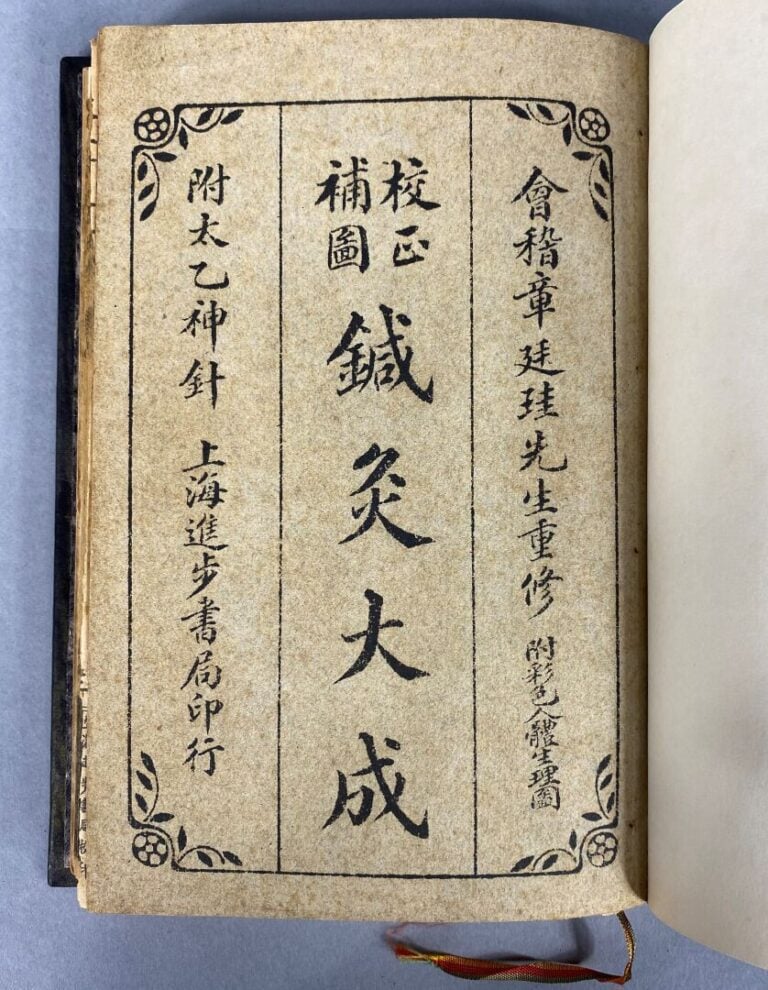 會稽章廷珪先生重修 附彩色人體生理圖
校正
補圖
鍼灸大成
附太乙神針 上海進步書局印行